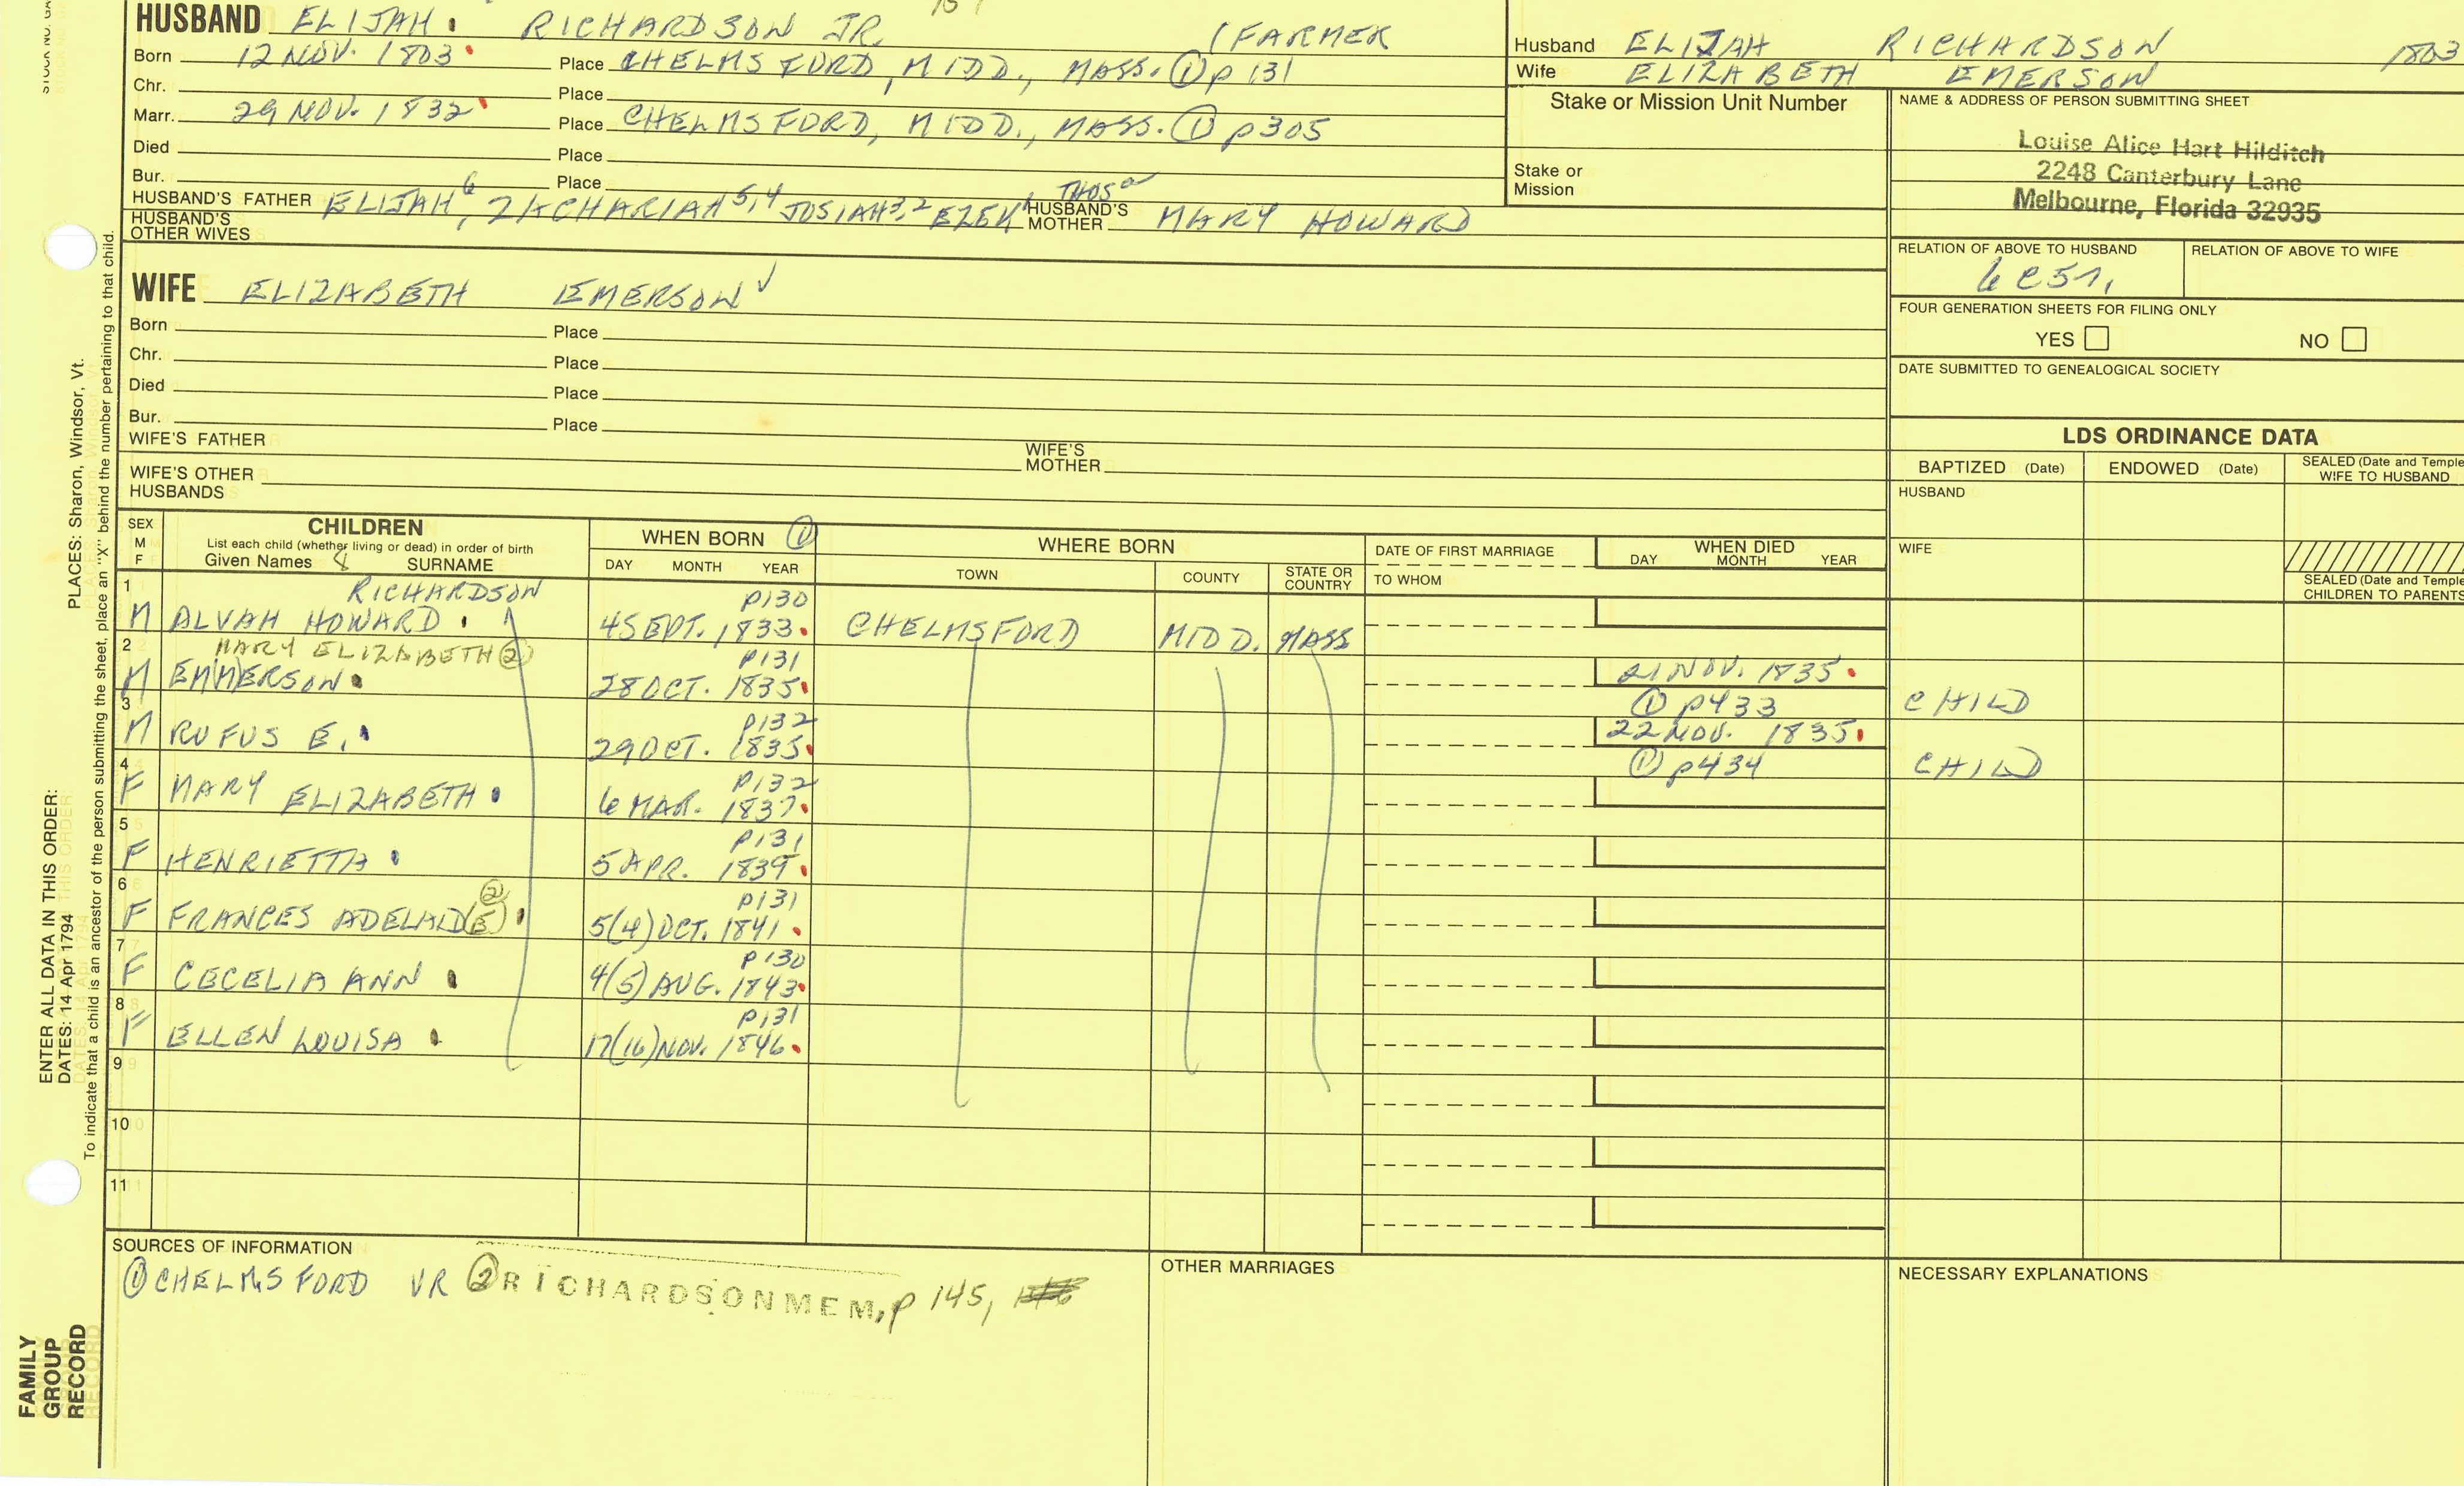 HUSBAND ELIJAH RICHARDSON JR. (FARMER
Born 12 NOV. 1803 Place CHELMSFORD, MIDD., MASS. ① p 131
Chr. Place
Marr. 29 NOV. 1832 Place CHELMSFORD, MIDD., MASS. ① p305
Died Place
Bur. Place
HUSBAND'S FATHER ELIJAH 6, ZACHARIAH 5,4 JOSIAH 3,2 EZEK 1 THOS a HUSBAND'S MOTHER MARY HOWARD
HUSBAND'S OTHER WIVES
WIFE ELIZABETH EMERSON ✓
Born Place
Chr. Place
Died Place
Bur. Place
WIFE'S FATHER WIFE'S MOTHER
WIFE'S OTHER HUSBANDS
Husband ELIJAH RICHARDSON 1803
Wife ELIZABETH EMERSON
Stake or Mission Unit Number
Stake or Mission
NAME & ADDRESS OF PERSON SUBMITTING SHEET
Louise Alice Hart Hilditch
2248 Canterbury Lane
Melbourne, Florida 32935
RELATION OF ABOVE TO HUSBAND RELATION OF ABOVE TO WIFE
FOUR GENERATION SHEETS FOR FILING ONLY
YES NO
DATE SUBMITTED TO GENEALOGICAL SOCIETY
LDS ORDINANCE DATA
BAPTIZED (Date) ENDOWED (Date) SEALED (Date and Temple
WIFE TO HUSBAND
HUSBAND
WIFE
SEALED (Date and Temple
CHILDREN TO PARENTS
SEX M F
CHILDREN
List each child (whether living or dead) in order of birth
Given Names 8 SURNAME
WHEN BORN ①
DAY MONTH YEAR
WHERE BORN
TOWN COUNTY STATE OR COUNTRY
DATE OF FIRST MARRIAGE
TO WHOM
WHEN DIED
DAY MONTH YEAR
1 RICHARDSON P130
M ALVAH HOWARD 4 SEPT. 1833 CHELMSFORD MIDD. MASS
2 MARY ELIZABETH ② P131
M EM(M)ERSON 28 OCT. 1835 21 NOV. 1835
① p433 CHILD
3 P132
M RUFUS E. 29 OCT. 1835 22 NOV. 1835
① p434 CHILD
4 P132
F MARY ELIZABETH 6 MAR. 1837
5 P131
F HENRIETTA 5 APR. 1839
6 ② P131
F FRANCES ADELAID(E) 5(4) OCT. 1841
7 P130
F CECELIA ANN 4(5) AUG. 1843
8 P131
F ELLEN LOUISA 17(16) NOV. 1846
9
10
11
SOURCES OF INFORMATION
① CHELMSFORD VR ② RICHARDSONMEM, p 145,
OTHER MARRIAGES
NECESSARY EXPLANATIONS
ENTER ALL DATA IN THIS ORDER:
DATES: 14 Apr 1794 PLACES: Sharon, Windsor, Vt.
To indicate that a child is an ancestor of the person submitting the sheet, place an "X" behind the number pertaining to that child.
FAMILY
GROUP
RECORD